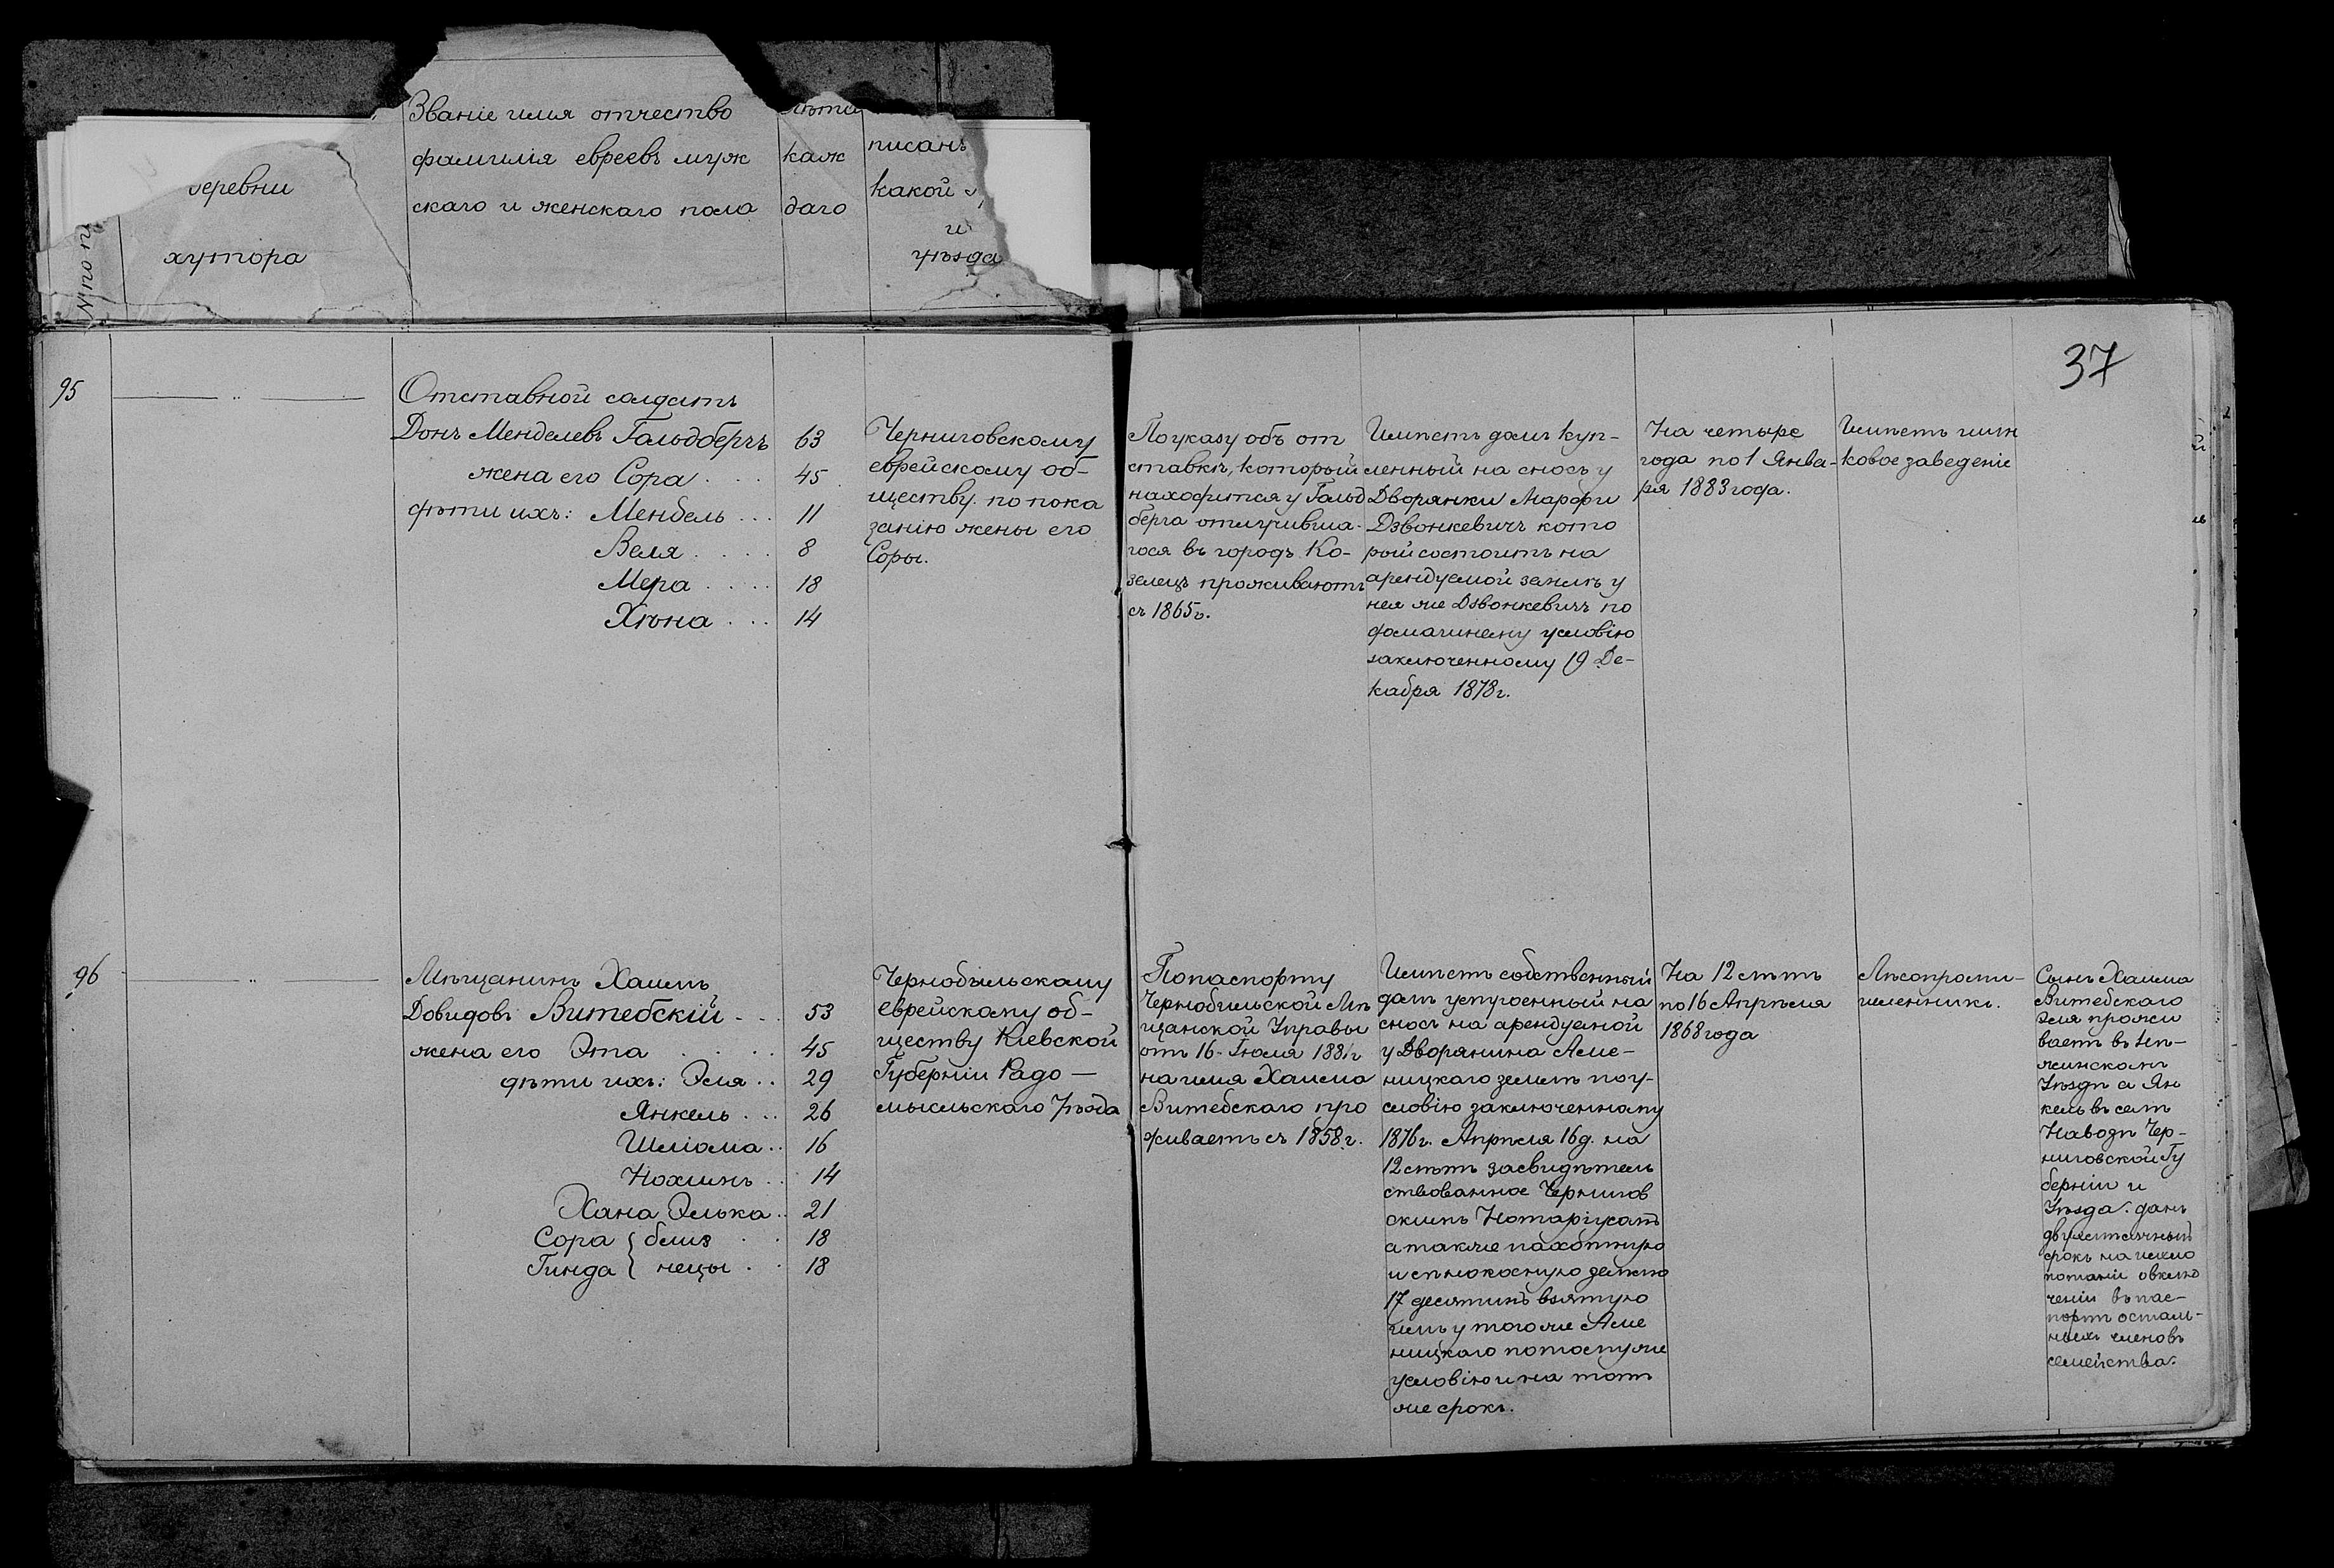 Званіе имя отчество
фамилія евреевъ муж
скаго и женскаго пола
лѣта
каж
даго
писанъ
какой
и
уѣзда
деревни
хутора
№ по п
37
95
Отставной солдатъ
Донъ Менделевъ Гольдбергъ 63
жена его Сора . . . 45
дѣти ихъ: Мендель . . . 11
Веля . . . . 8
Мера . . . . 18
Хѣна . . . 14
Черниговскому
еврейскому об-
ществу по пока
занію жены его
Соры.
По указу объ от
ставкѣ, который
находится у Гольд
берга отлучивша-
гося въ городъ Ко-
зелецъ проживаютъ
съ 1865г.
Имѣетъ домъ куп-
ленный на сносъ у
Дворянки Марфи
Дзвонкевичъ кото
рый состоитъ на
арендуемой землѣ у
нея же Дзвонкевичъ по
домашнему условію
заключенному 19 Де-
кабря 1878г.
На четыре
года по 1 Янва-
ря 1883 года.
Имѣетъ шин
ковое заведеніе
96
Мѣщанинъ Хаимъ
Довидовъ Витебскій . . 53
жена его Эта . . . . 45
дѣти ихъ: Эля . . 29
Янкель . . . 26
Шліома . . 16
Нохимъ . . 14
Хана Элька . . 21
Сора { близ . . 18
Гинда { нецы . . 18
Чернобыльскому
еврейскому об-
ществу Кіевской
Губерніи Радо-
мысльскаго Уѣзда
По паспорту
Чернобыльской Мѣ
щанской Управы
отъ 16 Іюля 1881г
на имя Хаима
Витебскаго про
живаетъ съ 1858г.
Имѣетъ собственный
домъ устроенный на
сносъ на арендуемой
у Дворянина Лиме-
ницкаго землѣ по у-
словію заключенному
1876г. Апрѣля 16 д. на
12 лѣтъ засвидѣтель
ствованное Чернигов
скимъ Нотаріусомъ
а также пахотную
и сѣнокосную землю
17 десятинъ взятую
имъ у того же
ницкаго по тому же
условію и на тотъ
же срокъ.
На 12 лѣтъ
по 16 Апрѣля
1868 года
Лѣсопромы-
шленникъ.
Сынъ Хаима
Витебскаго
Эля прожи
ваетъ въ Нѣ-
жинскомъ
Уѣздѣ а Ян
кель въ селѣ
Наводѣ Чер-
ниговской Гу
берніи и
Уѣзда. данъ
двухмѣсячный
срокъ на
о вклю
ченіи въ пас-
портъ осталь-
ныхъ членовъ
семейства.